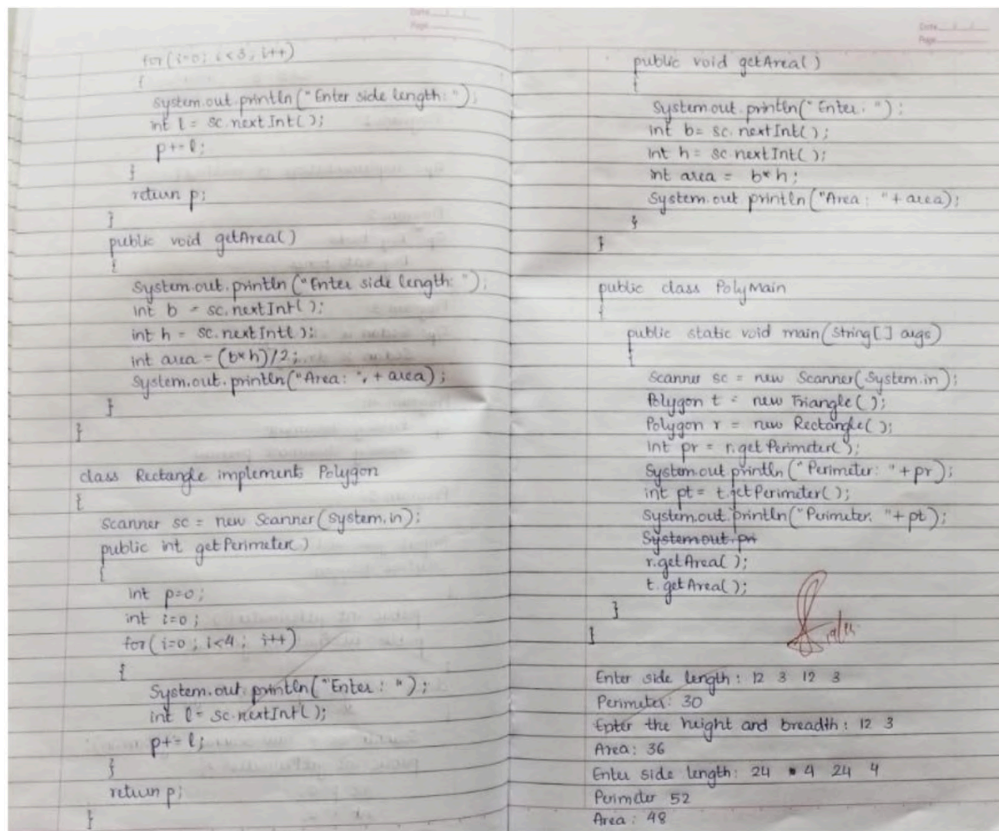 Date
Page
for (i=0; i<3; i++)
{
System.out.println("Enter side length: ");
int l = sc.nextInt();
p+=l;
}
return p;
}
public void getArea()
{
System.out.println("Enter side length: ");
int b = sc.nextInt();
int h = sc.nextInt();
int area = (b*h)/2;
System.out.println("Area: ", + area);
}
}
class Rectangle implements Polygon
{
Scanner sc = new Scanner(System.in);
public int getPerimeter()
{
int p=0;
int i=0;
for(i=0; i<4; i++)
{
System.out.println("Enter: ");
int l = sc.nextInt();
p+=l;
}
return p;
}
Date
Page
public void getArea()
{
System.out.println("Enter. ");
int b= sc.nextInt();
int h = sc.nextInt();
int area = b*h;
System.out println("Area: "+area);
}
}
public class PolyMain
{
public static void main(String[] args)
{
Scanner sc = new Scanner(System.in);
Polygon t = new Triangle();
Polygon r = new Rectangle();
int pr = r.getPerimeter();
System.out println("Perimeter: "+pr);
int pt= t.getPerimeter();
System.out.println("Perimeter. "+pt);
System.out.pri
r.getArea();
t.getArea();
}
}
Enter side length: 12 3 12 3
Perimeter: 30
Enter the height and breadth: 12 3
Area: 36
Enter side length: 24 4 24 4
Perimeter 52
Area: 48